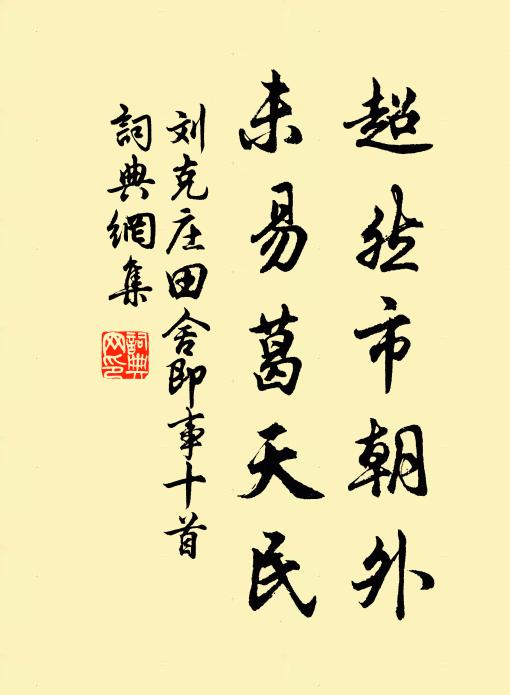 超然市朝外
未易葛天民
刘克庄田舍即事十首
詞典網集
詞典
网印